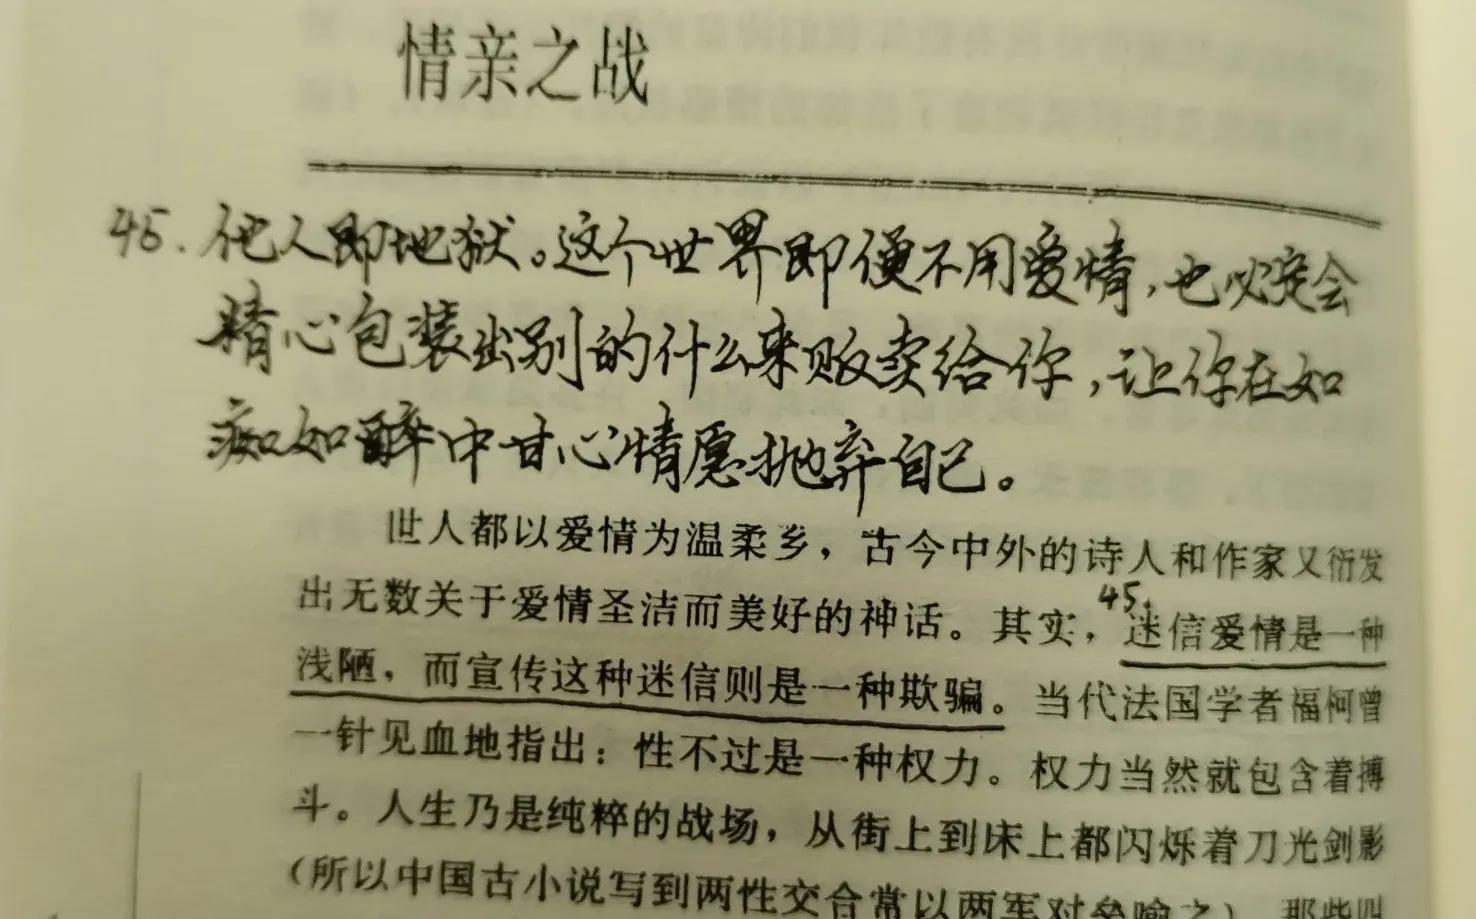 情亲之战
45. 他人即地狱。这个世界即便不用爱情，也必定会
精心包装出别的什么来贩卖给你，让你在如
痴如醉中甘心情愿抛弃自己。
世人都以爱情为温柔乡，古今中外的诗人和作家又衍发
出无数关于爱情圣洁而美好的神话。其实，迷信爱情是一种
45.
浅陋，而宣传这种迷信则是一种欺骗。当代法国学者福柯曾
一针见血地指出：性不过是一种权力。权力当然就包含着搏
斗。人生乃是纯粹的战场，从街上到床上都闪烁着刀光剑影
（所以中国古小说写到两性交合常以两军对垒喻之），那些